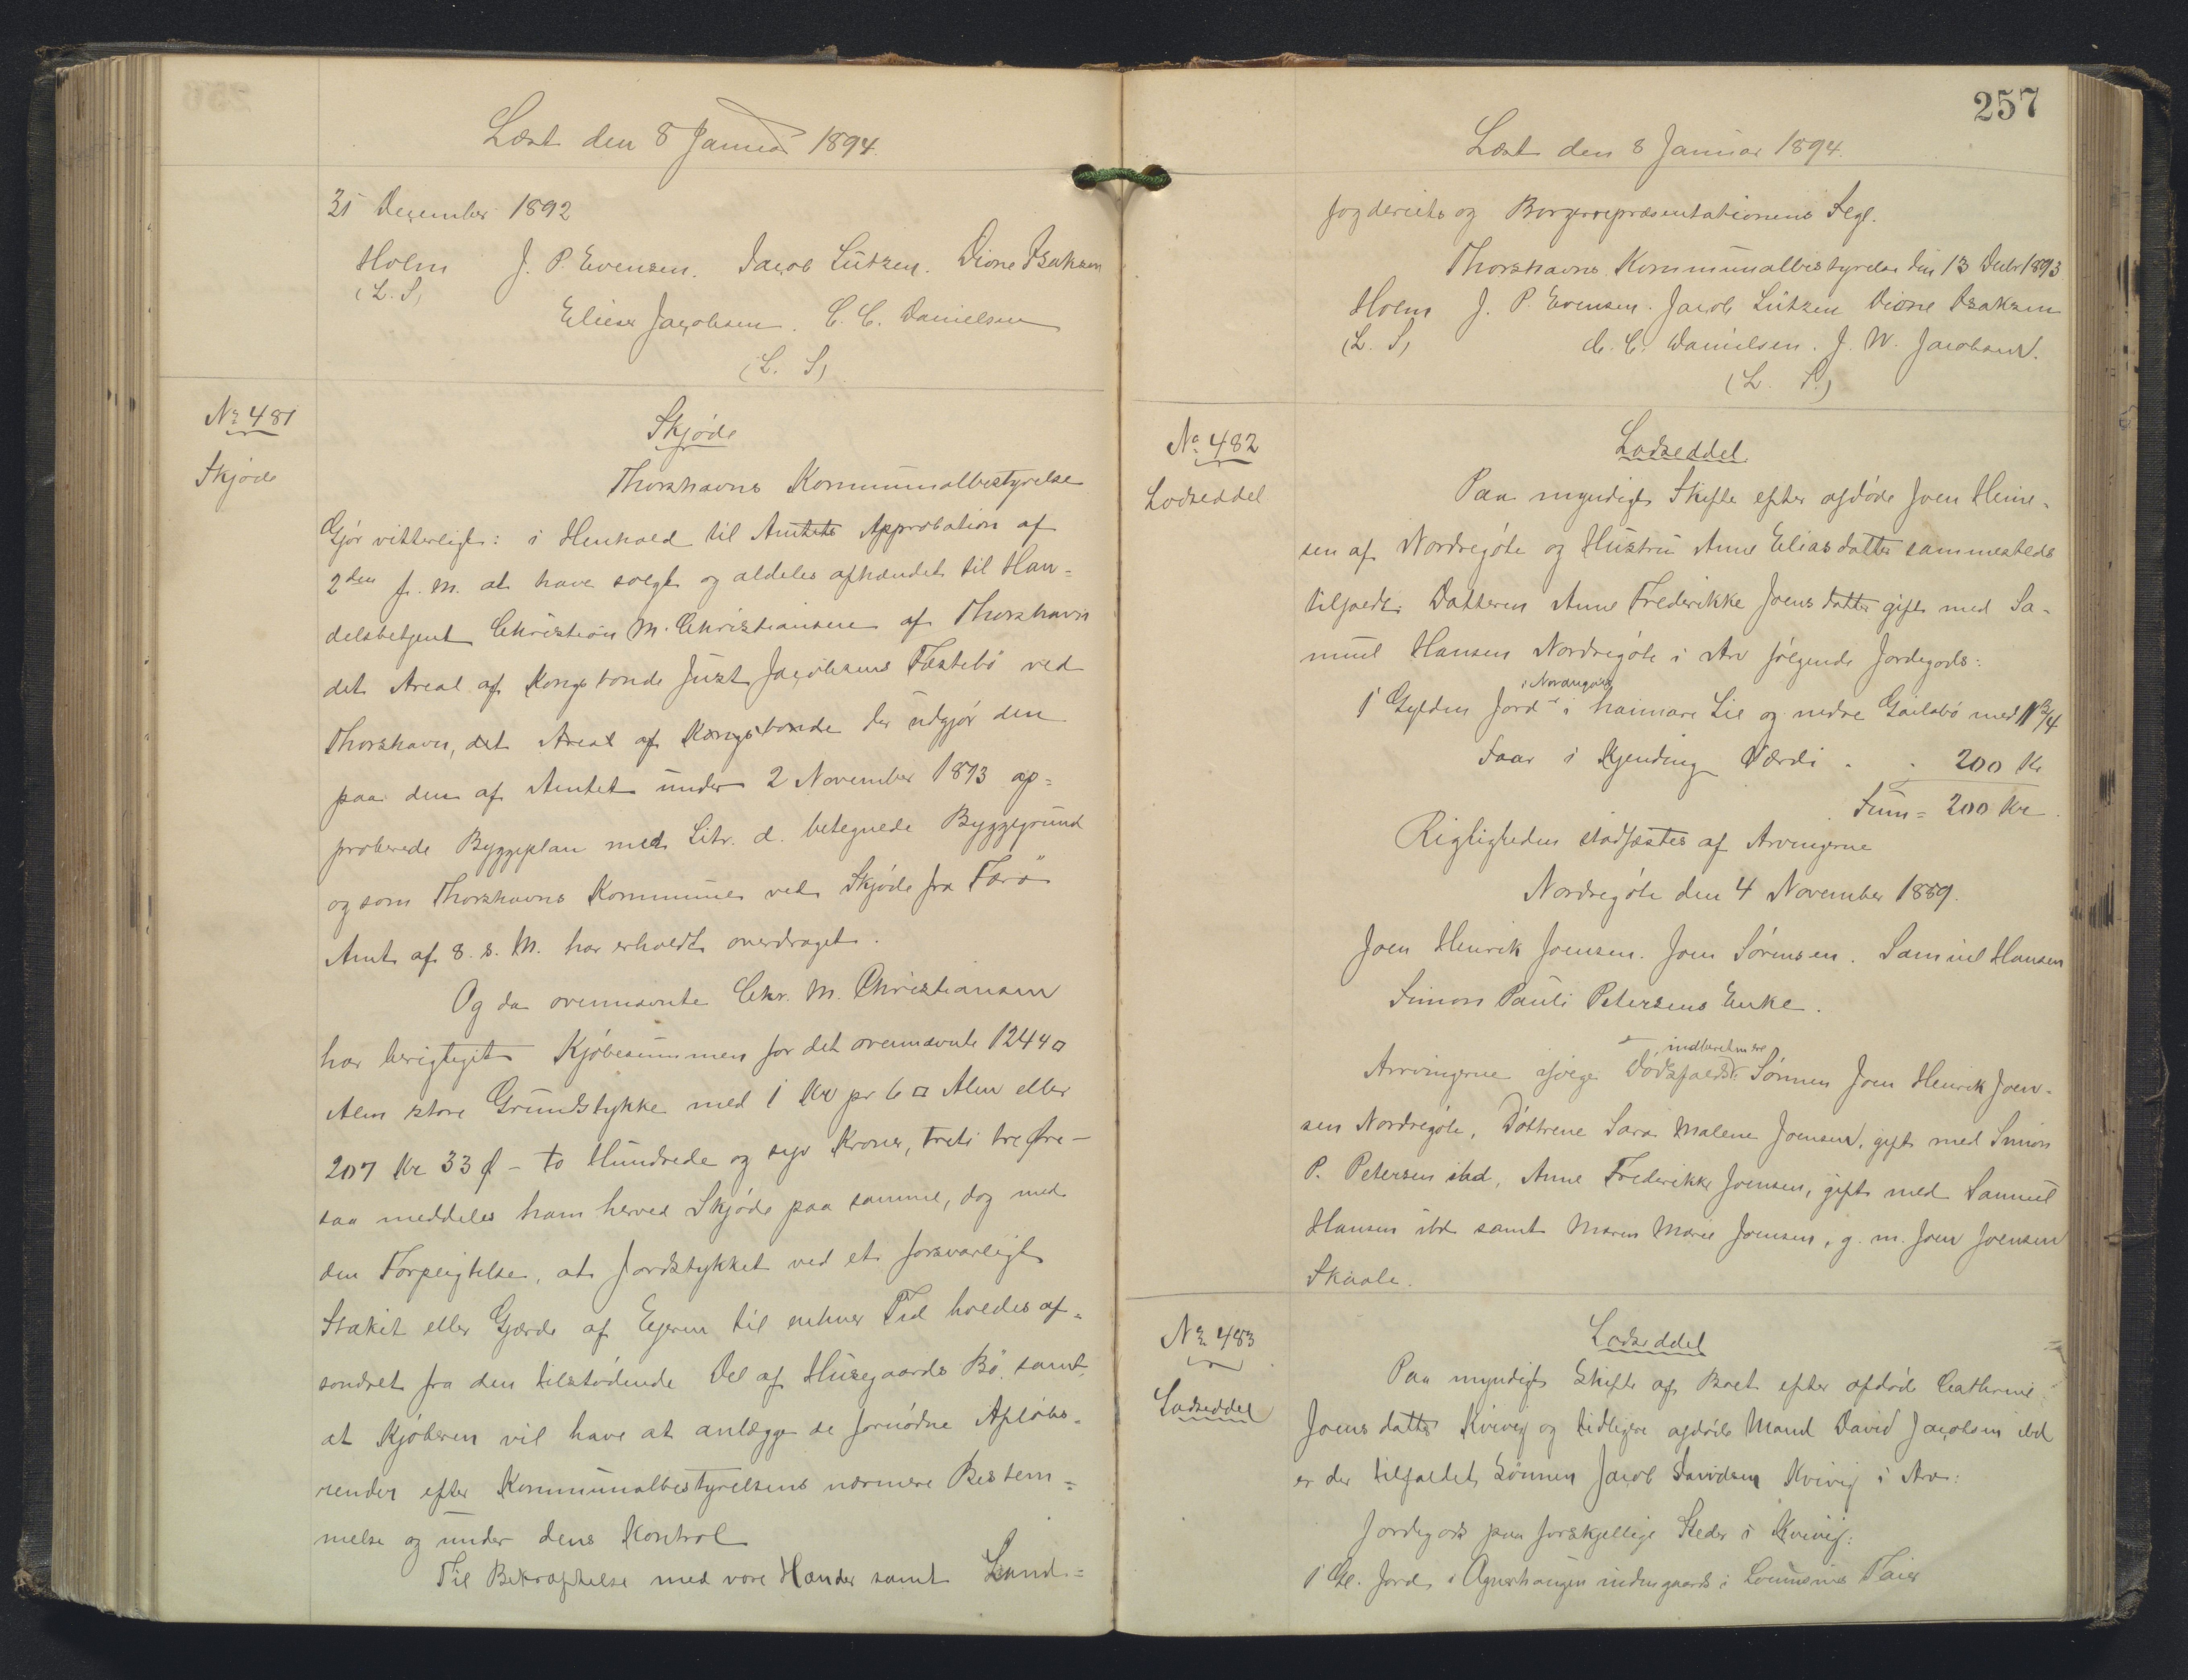 Læst den 8 Januar 1894.
31 December 1892
Holm J. P. Evensen. Jacob Lützen. Dione Isaksen
(L. S)
Elieser Jacobsen. C. C. Danielsen
(L. S)
No 481
Skjøde
Skjøde
Thorshavns Kommunalbestyrelse
Gjør vitterligt: i Henhold til Amtets Approbation af
2den f. M. at have solgt og aldeles afhændet til Han=
delsbetjent Christian M. Christiansen af Thorshavn
det Areal af Kongsbonde Just Jacobsens Fæstebø ved
Thorshavn, det Areal af Kongsbonde der udgjør den
paa den af Amtet under 2 November 1893 ap=
proberede Byggeplan med Litr. d. betegnede Byggegrund
og som Thorshavns Kommune ved Skjøde fra Færø
Amt af 8. s. M. har erholdt overdraget.
Og da ovennævnte Chr. M. Christiansen
har berigtiget Kjøbesummen for det ovennævnte 1244 □
Alen store Grundstykke med 1 Kr pr 6 □ Alen eller
207 Kr 33 Ø – to Hundrede og syv Kroner, treti tre Øre –
saa meddeles ham herved Skjøde paa samme, dog med
den Forpligtelse, at Jordstykket ved et forsvarligt
Stakit eller Gjærde af Ejeren til enhver Tid holdes af=
sondret fra den tilstødende Del af Husegaards Bø, samt
at Kjøberen vil have at anlægge de fornødne Afløbs=
render efter Kommunalbestyrelsens nærmere Bestem=
melse og under dens Kontrol
Til Bekræftelse med vore Hænder samt Land=
257
Læst den 8 Januar 1894.
fogderiets og Borgerrepræsentationens Segl.
Thorshavns Kommunalbestyrelse den 13 Decbr 1893
Holm J. P. Evensen. Jacob Lützen Dione Isaksen
(L. S) C. C. Danielsen. J. W. Jacobsen.
(L. S.)
No 482
Lodseddel
Lodseddel.
Paa myndigt Skifte efter afdøde Joen Heine=
sen af Nordregøte og Hustru Anne Eliasdatter sammesteds
tilfaldt Datteren Anne Frederikke Joensdatter gift med Sa=
muel Hansen Nordregøte i Arv følgende Jordegods:
i Nordregøte
1 Gylden Jord i haimare Lie og nedre Gailabø med 1 3/4
Faar i Kjending Værdi . . 200 Kr
Sum = 200 Kr.
Rigtigheden stadfæstes af Arvingerne
Nordregøte den 4 November 1889.
Joen Henrik Joensen. Joen Sørensen. Samuel Hansen
Simon Pauli Petersens Enke.
Arvingerne ifølge Dødsfalds Sønnen Joen Henrik Joen=
sen Nordregøte, Døttrene Sara Malene Joensen, gift med Simon
P. Petersen ibd, Anne Frederikke Joensen, gift med Samuel
Hansen ibd samt Maren Marie Joensen, g. m. Joen Joensen
Skaale.
No 483
Lodseddel
Lodseddel
Paa myndigt Skifte af Boet efter afdøde Cathrine
Joensdatter Kvivig og tidligere afdøde Mand David Jacobsen ibd
er der tilfaldet Sønnen Jacob Davidsen Kvivig i Arv:
Jordegods paa forskjellige Steder i Kvivig:
1 Gl. Jord i indengaards i